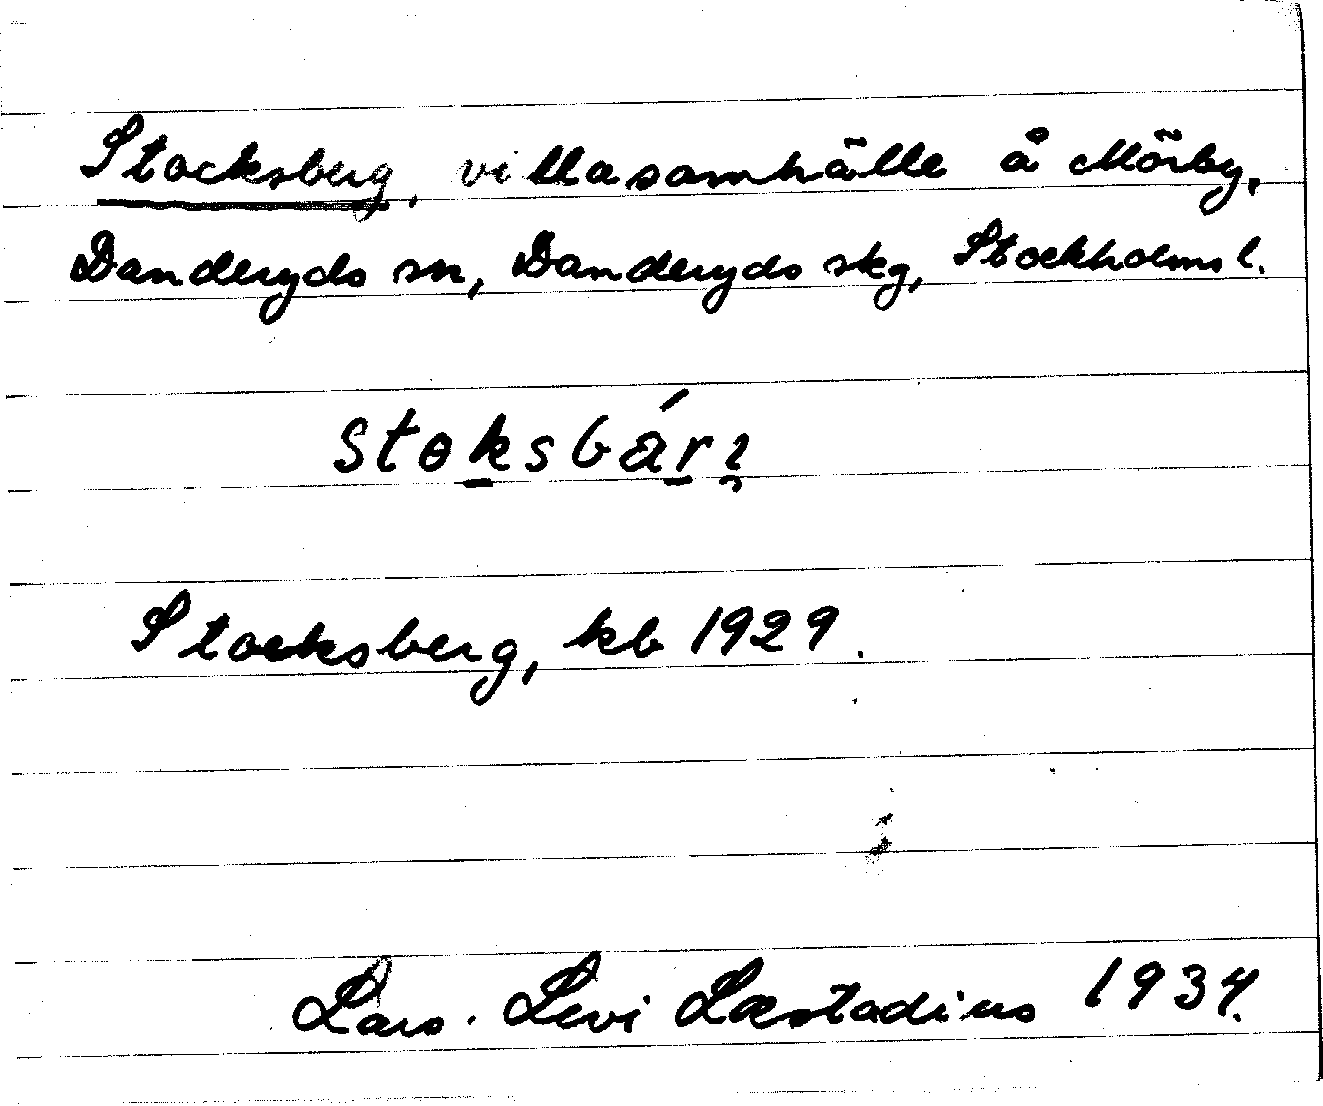 Stocksberg, villasamhälle å Mörby,
Danderyds sn, Danderyds skg, Stockholms l.
Stocksberg, kb 1929.
Lars. Levi Læstadius 1934.